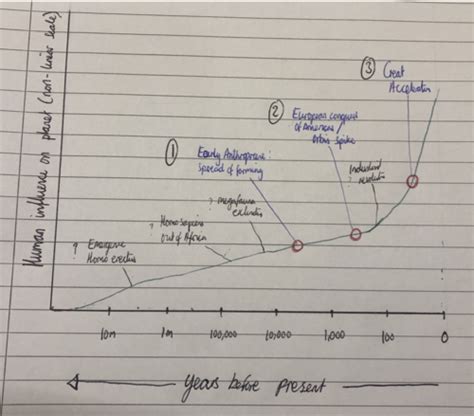 Human influence on planet (non-linear scale)
③ Great
Acceleration
② European conquest
of Americas
Orbis Spike
① Early Anthropocene:
Spread of farming
Industrial
revolution
? megafauna
extinction
? Homo sapiens
out of Africa
? Emergence
Homo erectus
10m 1m 100,000 10,000 1,000 100 0
Years before present